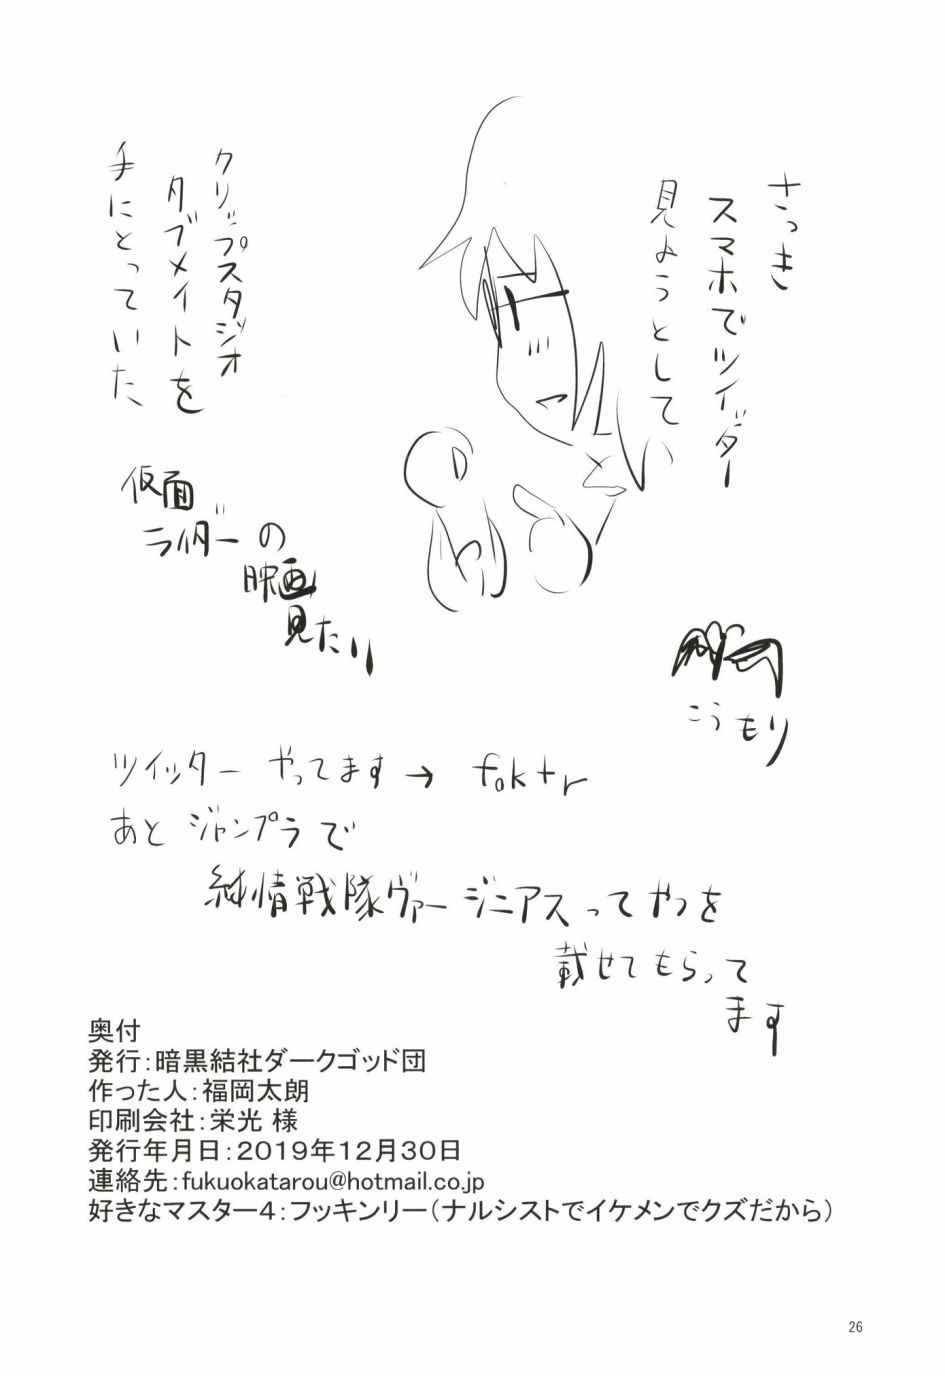 さっき
スマホでツイッター
見ようとしてい
クリップスタジオ
タブメイトを
手にとっていた
仮面
ライダーの
映画
見たい
こうもり
ツイッター やってます→ foktr
あと ジャンプラで
純情戦隊ヴァージニアスってやつを
載せてもらって
ます
奥付
発行:暗黒結社ダークゴッド団
作った人:福岡太朗
印刷会社:栄光 様
発行年月日:2019年12月30日
連絡先:fukuokatarou@hotmail.co.jp
好きなマスター4:フッキンリー(ナルシストでイケメンでクズだから)
26